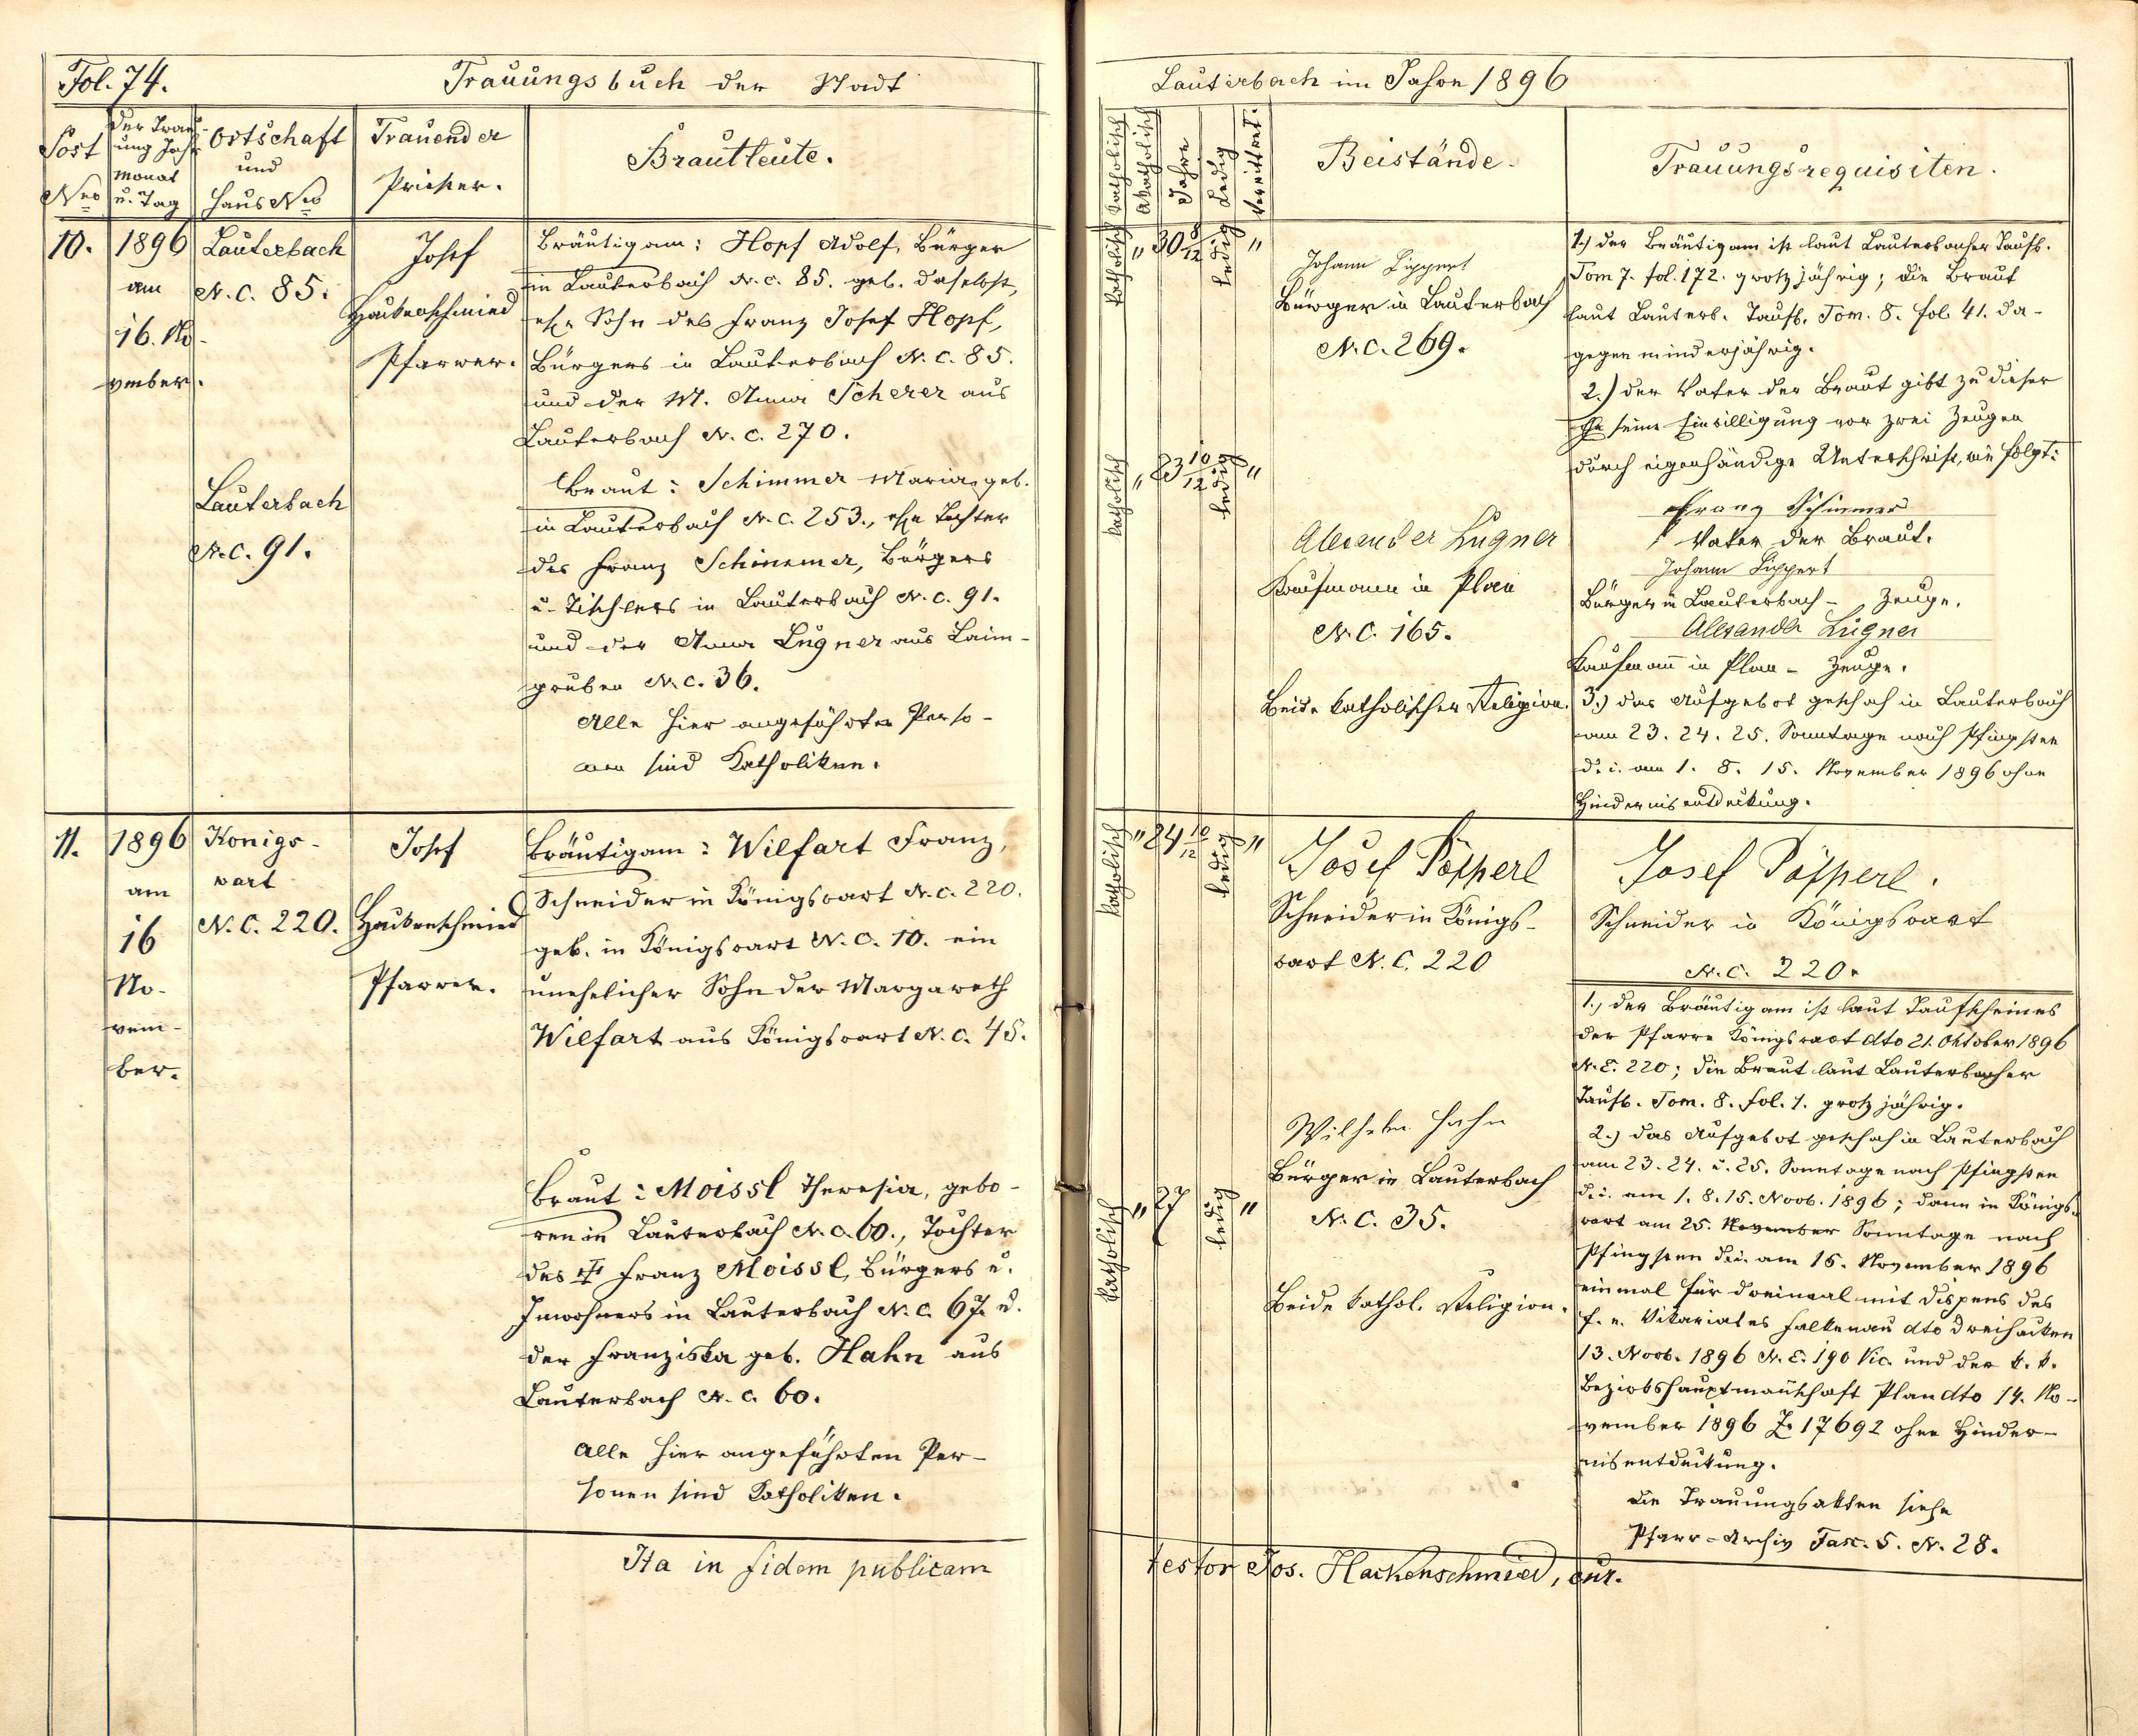 Fol. 74.
Trauungsbuch der Stadt
Post
Nro
der Trau-
ung Jahr
Monat
u. Tag
Ortschaft
und
Haus Nro
Trauender
Priester.
Brautleute.
10.
1896
am
16. No-
vember.
Lauterbach
N. C. 85.
Josef
Hackenschmied
Pfarrer.
Bräutigam: Hopf Adolf, Bürger
in Lauterbach N. C. 85. geb. daselbst,
ehe. Sohn des Franz Josef Hopf,
Bürgers in Lauterbach N. C. 85.
und der M. Anna Scherer aus
Lauterbach N. C. 270.
Lauterbach
N. C. 91.
Braut: Schimmer Maria, geb.
in Lauterbach N. C. 253., ehe Tochter
des Franz Schimmer, Bürgers
u. Tischlers in Lauterbach N. C. 91.
und der Anna Lugner aus Laim-
gruben N. C. 36.
Alle hier angeführten Perso-
nen sind Katholiken.
11.
1896
am
16
No-
vem-
ber.
Königs-
wart
N. C. 220.
Josef
Hackenschmied
Pfarrer.
Bräutigam: Wilfart Franz,
Schneider in Königswart N. C. 220.
geb. in Königswart N. C. 10. ein
unehelicher Sohn der Margareth
Wilfart aus Königswart N. C. 45.
Braut: Moissl Theresia, gebo-
ren in Lauterbach N. C. 60., Tochter
des † Franz Moissl, Bürgers u.
Inwohners in Lauterbach N. C. 67. u.
der Franziska geb. Hahn aus
Lauterbach N. C. 60.
Alle hier angeführten Per-
sonen sind Katholiken.
Ita in fidem publicam
Lauterbach im Jahre 1896
Katholisch
Akatholisch
Jahre
Ledig
Verwittwet.
Beistände.
Trauungsrequisiten.
Katholisch " 30 8/12 ledig "
Johann Lippert
Bürger in Lauterbach
N. C. 269.
Katholisch " 23 10/12 ledig "
Alexander Lugner
Kaufmann in Plan
N. C. 165.
Beide katholischer Religion.
1.) der Bräutigam ist laut Lauterbacher Taufb.
Tom 7. fol. 172. großjährig; die Braut
laut Lauterb. Taufb. Tom. 8. fol. 41. da-
gegen minderjährig.
2.) der Vater der Braut gibt zu dieser
Ehe seine Einwilligung vor zwei Zeugen
durch eigenhändige Unterschrift, wie folgt:
Franz Schimmer
Vater der Braut.
Johann Lippert
Bürger in Lauterbach - Zeuge.
Alexander Lugner
Kaufmann in Plan - Zeuge.
3.) das Aufgebot geschah in Lauterbach
am 23. 24. 25. Sonntage nach Pfingsten
d. i. am 1. 8. 15. November 1896 ohne
Hindernisentdeckung.
Katholisch " 24 10/12 ledig "
Josef Pöpperl
Schneider in Königs-
wart N. C. 220
Katholisch " 27 ledig "
Wilhelm Hahn
Bürger in Lauterbach
N. C. 35.
Beide kathol. Religion.
Josef Pöpperl.
Schneider in Königswart
N. C. 220.
1., der Bräutigam ist laut Taufscheines
der Pfarre Königswart dto 21. Oktober 1896
N. E. 220; die Braut laut Lauterbacher
Taufb. Tom. 8. fol. 1. großjährig.
2.) das Aufgebot geschah in Lauterbach
am 23. 24. u. 25. Sonntage nach Pfingsten
d. i. am 1. 8. 15. Novb. 1896; dann in Königs-
wart am 25. November Sonntage nach
Pfingsten d. i. am 15. November 1896
einmal für dreimal mit Dispens des
f. e. Vikariates Falkenau dto Dreihacken
13. Novb. 1896 N. E. 190 Vic. und der k. k.
Bezirkshauptmannschaft Plan dto 14. No-
vember 1896 Z. 17692 ohne Hinder-
nisentdeckung.
Die Trauungsakten siehe
Pfarr-Archiv Fasc. 5. N. 28.
testor Jos. Hackenschmied, cur.